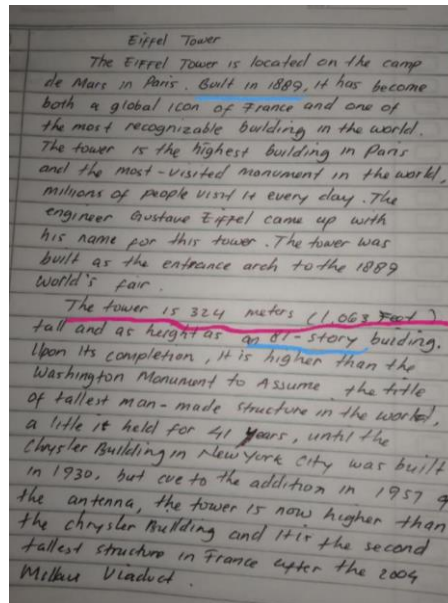 Eiffel Tower
The Eiffel Tower is located on the camp
de Mars in Paris. Built in 1889, it has become
both a global icon of France and one of
the most recognizable building in the world.
The tower is the highest building in Paris
and the most-visited monument in the world,
millions of people visit it every day. The
engineer Gustave Eiffel came up with
his name for this tower. The tower was
built as the entrance arch to the 1889
world's fair.
The tower is 324 meters (1,063 Feet)
tall and as height as an 81-story buiding.
Upon its completion, it is higher than the
Washington Monument to Assume the title
of tallest man-made structure in the world,
a litle it held for 41 years, until the
Chrysler Building in New York City was built
in 1930, but cue to the addition in 1957 of
the antenna, the tower is now higher than
the chrysler Building and it is the second
tallest structure in France after the 2004
Millau Viaduct.